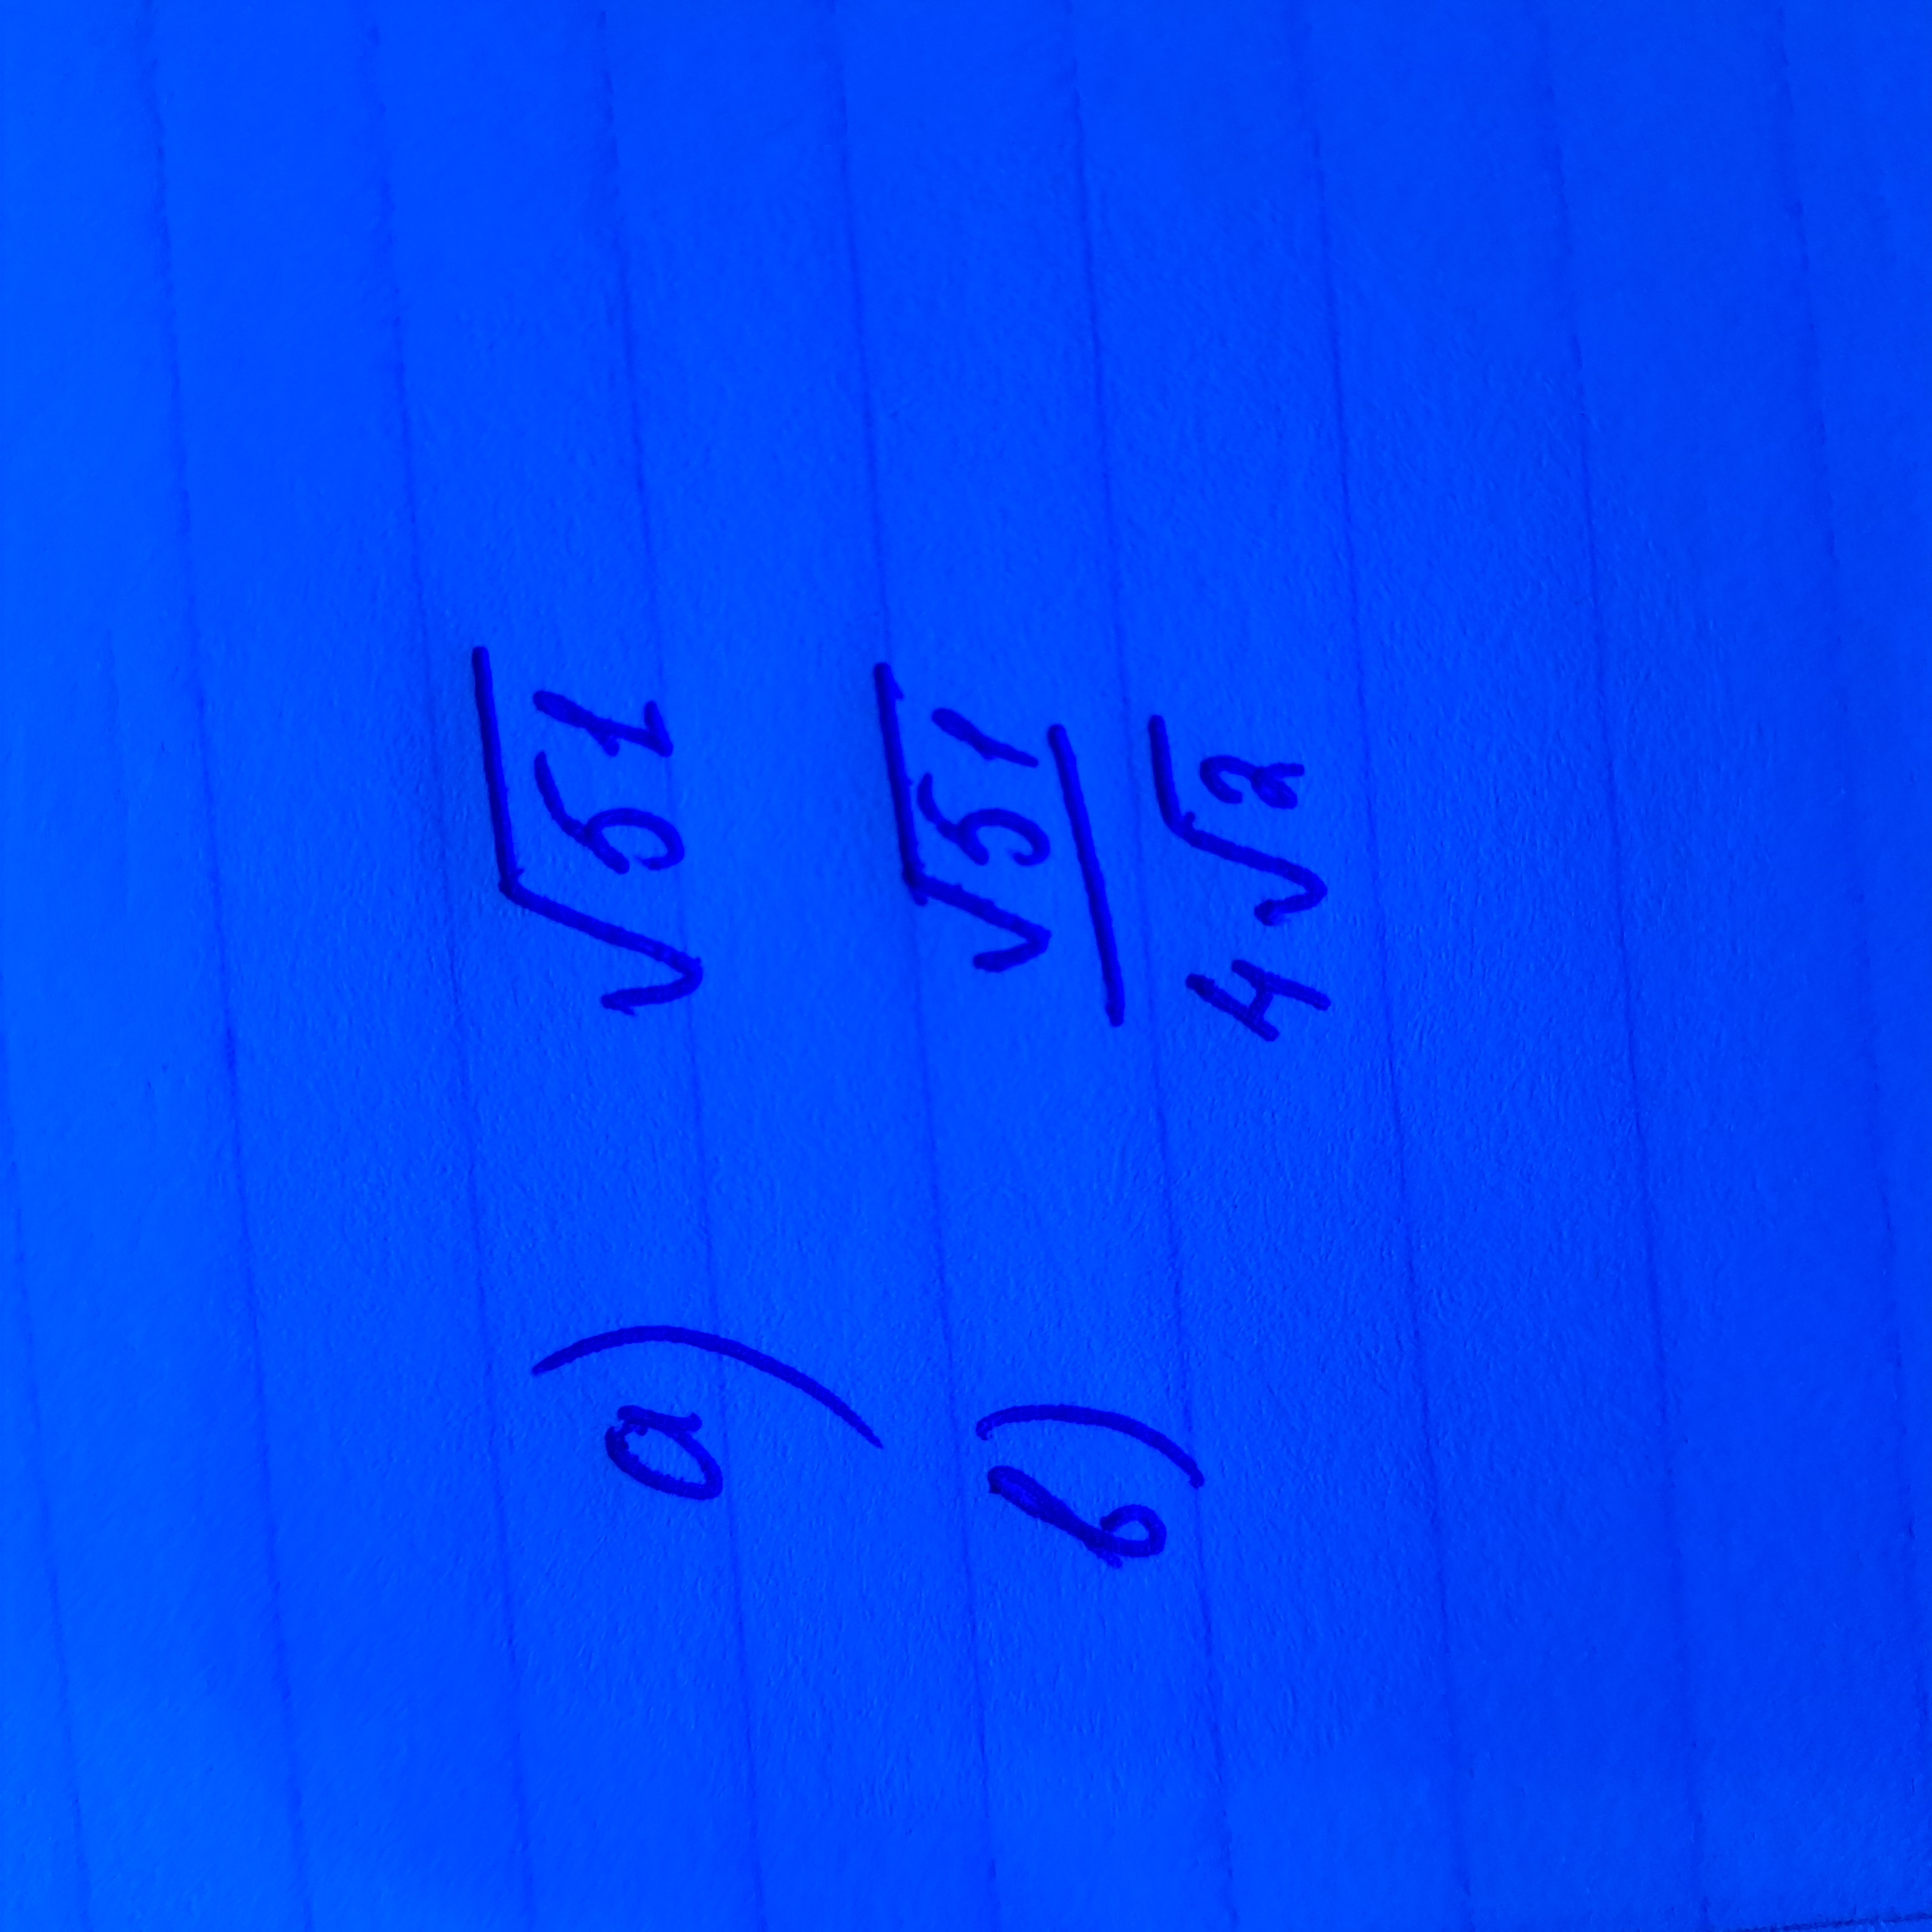 а) √51
б) √51 / 4√2